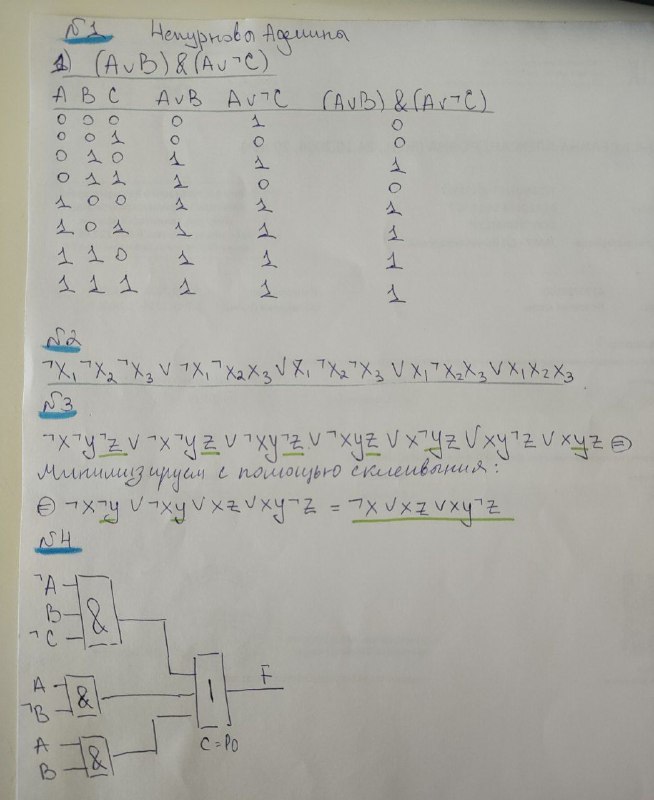 №1 Непурнова Аделина
1) (A∨B)&(A∨¬C)
A B C A∨B A∨¬C (A∨B)&(A∨¬C)
0 0 0 0 1 0
0 0 1 0 0 0
0 1 0 1 1 1
0 1 1 1 0 0
1 0 0 1 1 1
1 0 1 1 1 1
1 1 0 1 1 1
1 1 1 1 1 1
№2
¬X₁¬X₂¬X₃ ∨ ¬X₁¬X₂X₃ ∨ X₁¬X₂¬X₃ ∨ X₁¬X₂X₃ ∨ X₁X₂X₃
№3
¬x¬y¬z ∨ ¬x¬yz ∨ ¬xy¬z ∨ ¬xyz ∨ x¬yz ∨ xy¬z ∨ xyz ⊜
Минилизируем с помощью склеивыния:
⊜ ¬x¬y ∨ ¬xy ∨ xz ∨ xy¬z = ¬x ∨ xz ∨ xy¬z
№4
¬A
B &
¬C
A
¬B &
A
B &
1 F
C=P0